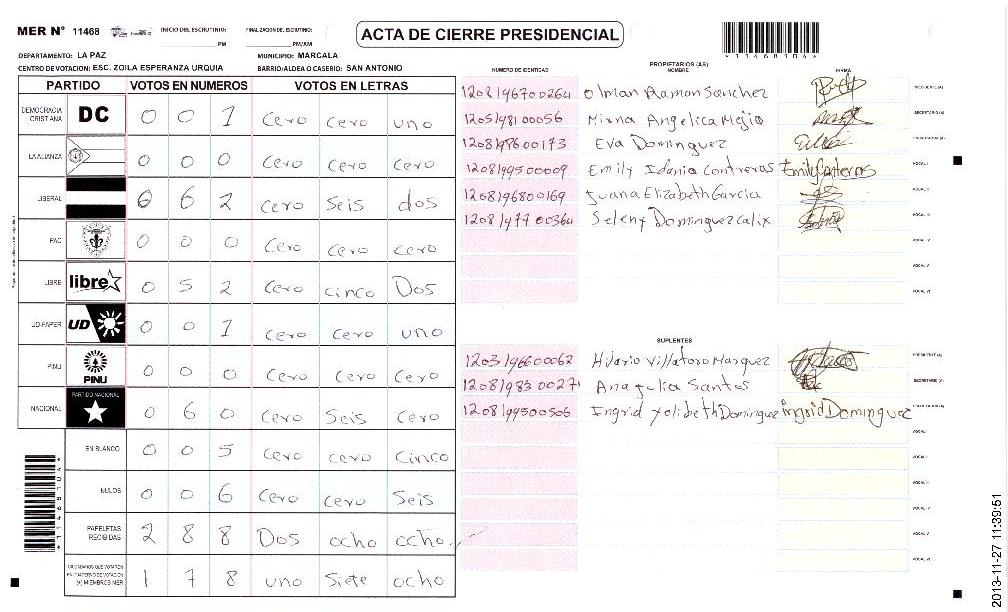 MER N° 11468 INICIO DEL ESCRUTINIO: PM FINALIZACION DEL ESCRUTINIO: PM/AM
ACTA DE CIERRE PRESIDENCIAL
DEPARTAMENTO: LA PAZ MUNICIPIO: MARCALA
CENTRO DE VOTACION: ESC. ZOILA ESPERANZA URQUIA BARRIO/ALDEA O CASERIO: SAN ANTONIO
PARTIDO VOTOS EN NUMEROS VOTOS EN LETRAS
DEMOCRACIA CRISTIANA DC 0 0 1 Cero Cero uno
LA ALIANZA 0 0 0 Cero Cero Cero
LIBERAL 0 6 2 Cero Seis dos
PAC 0 0 0 Cero Cero Cero
LIBRE libre 0 5 2 Cero cinco Dos
UD/FAPER UD 0 0 1 Cero Cero uno
PINU PINU 0 0 0 Cero Cero Cero
NACIONAL PARTIDO NACIONAL 0 6 0 Cero Seis Cero
EN BLANCO 0 0 5 Cero cero Cinco
NULOS 0 0 6 Cero Cero Seis
PAPELETAS RECIBIDAS 2 8 8 Dos ocho ocho
CIUDADANOS QUE VOTARON EN CUADERNO DE VOTACION (+) MIEMBROS MER 1 7 8 uno Siete ocho
PROPIETARIOS (AS)
NUMERO DE IDENTIDAD NOMBRE FIRMA
1208196700264 Olman Ramon Sanchez PRESIDENTE (A)
1205198100056 Mirna Angelica Mejia SECRETARIO (A)
1208198600173 Eva Dominguez
1208199500009 Emily Idania Contreras Emily Contreras VOCAL I
1208196800169 Juana Elizabeth Garcia VOCAL II
1208197700364 Seleny Dominguez Calix VOCAL III
VOCAL IV
VOCAL V
VOCAL VI
SUPLENTES
1203196600062 Hilario Villatoro Marquez PRESIDENTE (A)
1208198300271 Ana Julia Santos SECRETARIO (A)
1208199500506 Ingrid Yolibeth Dominguez ingrid Dominguez
VOCAL I
VOCAL II
VOCAL III
VOCAL IV
VOCAL V
VOCAL VI
2013-11-27 11:39:51